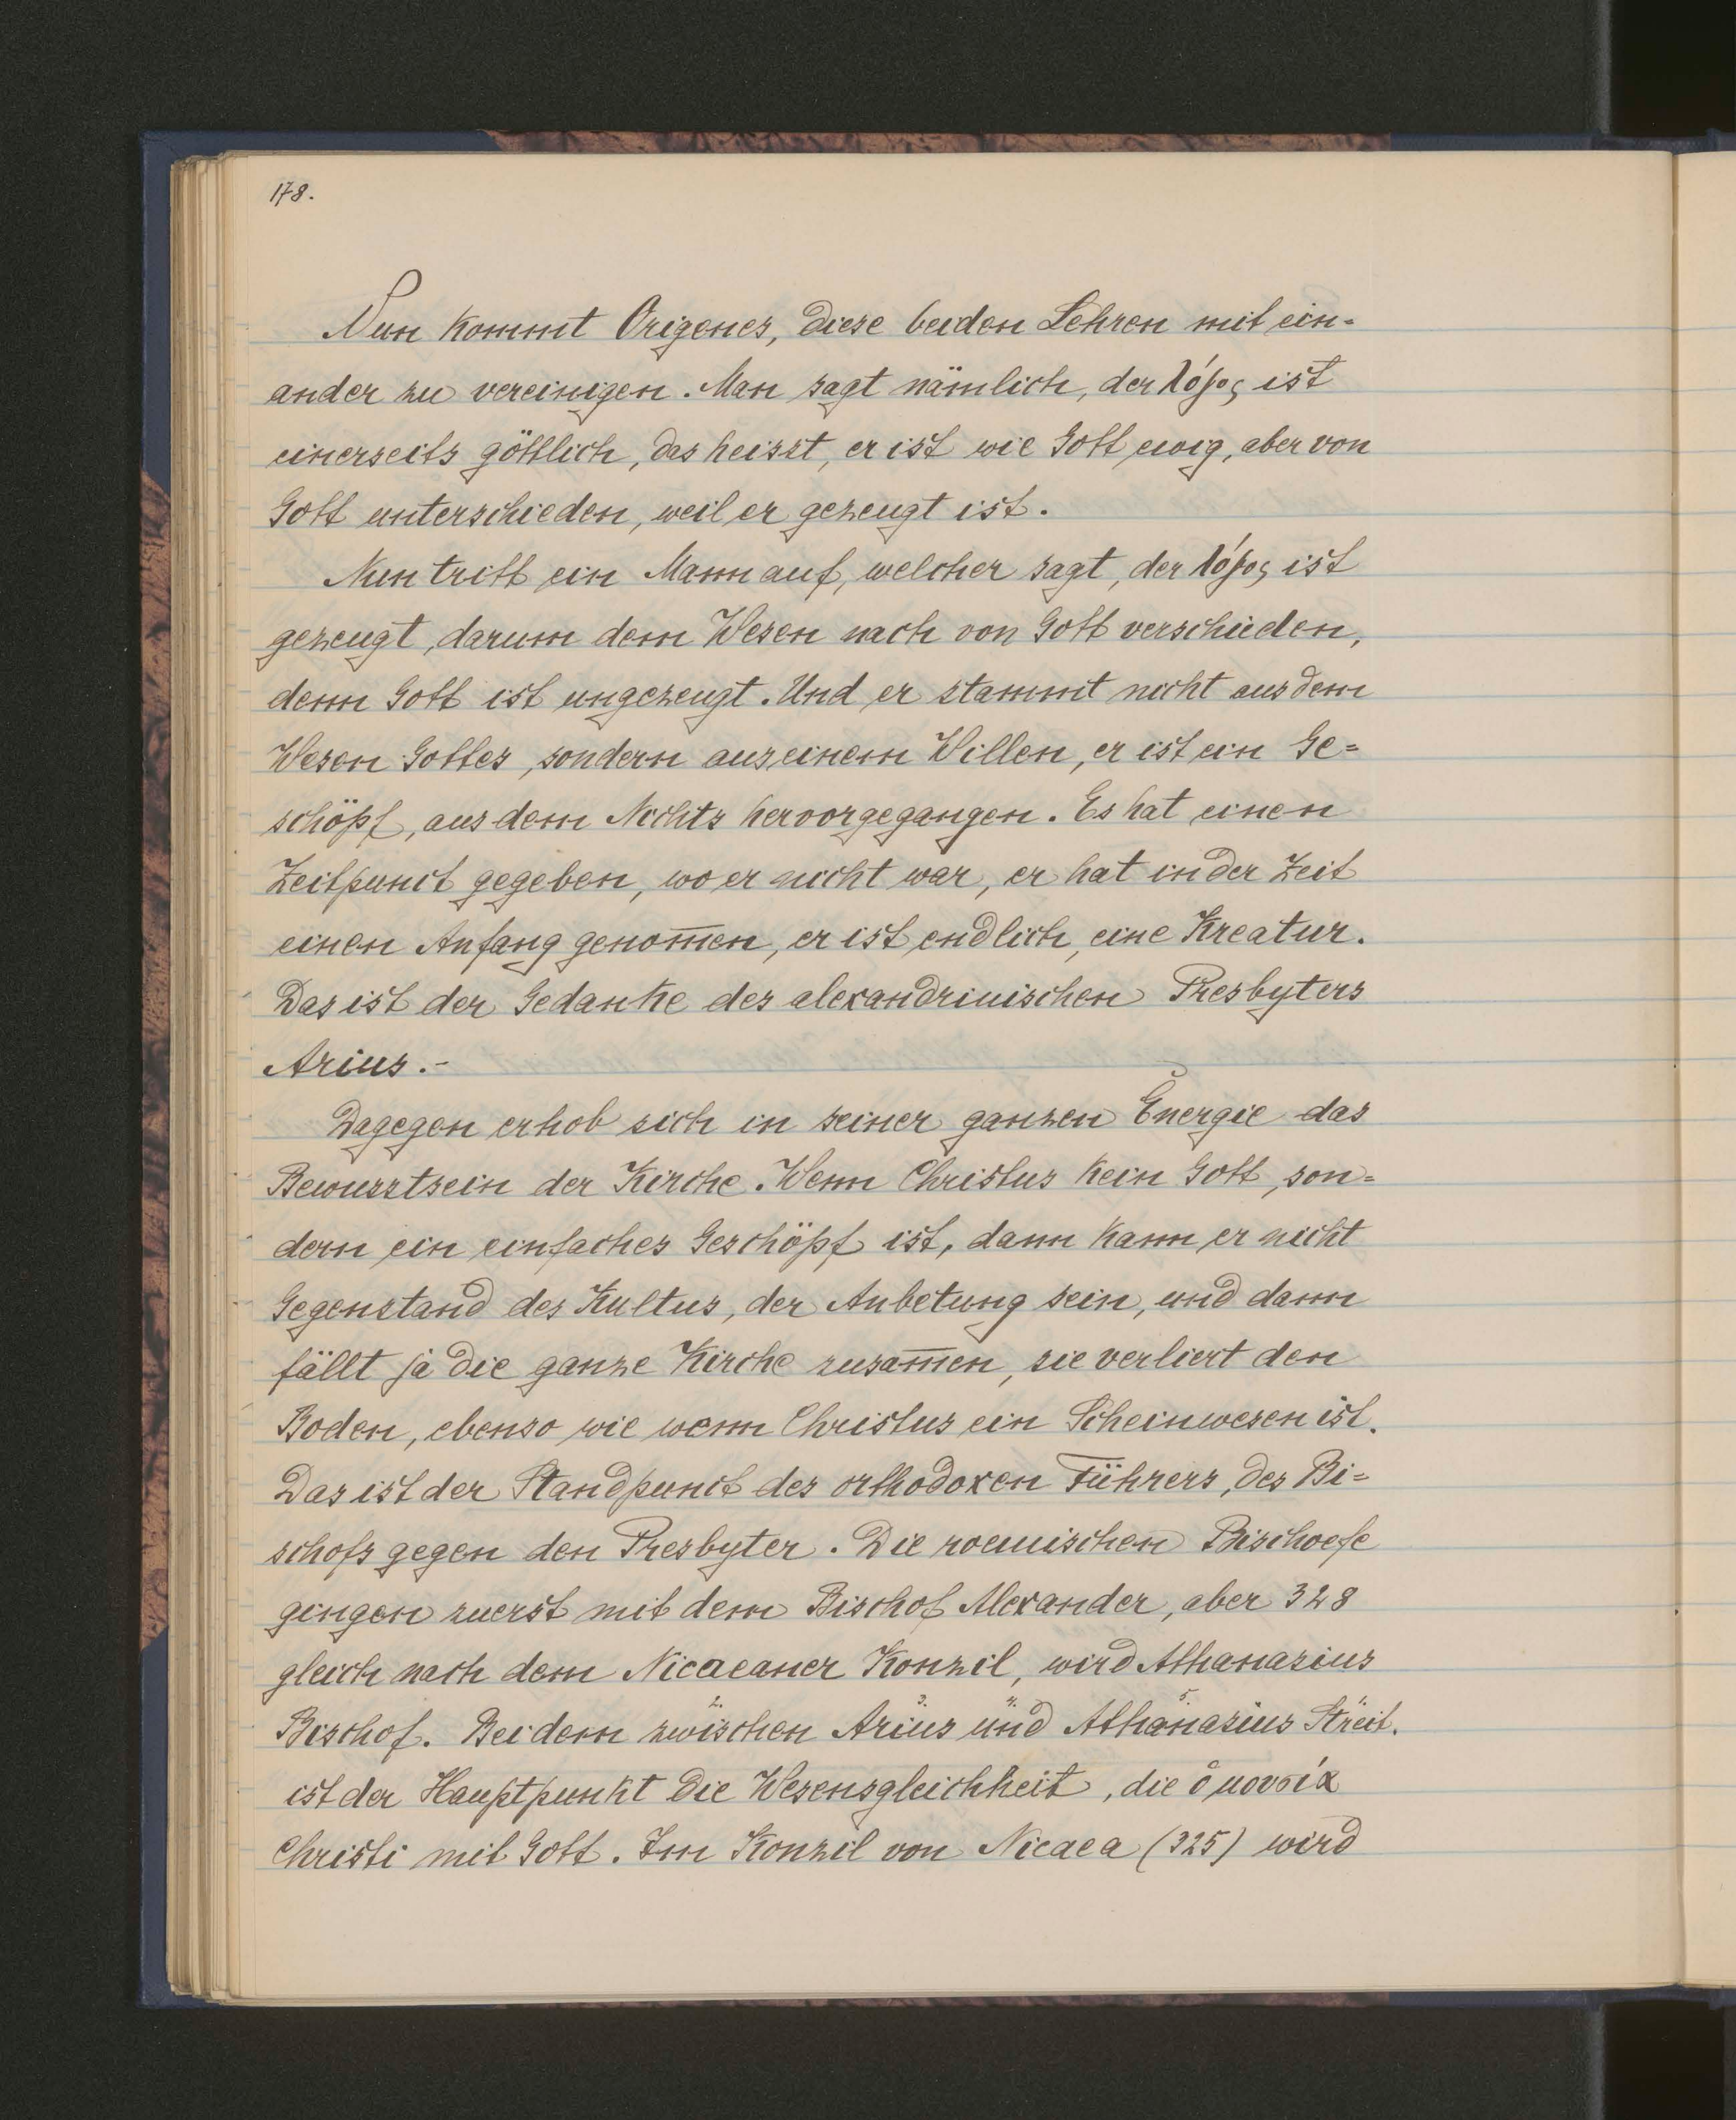 178.
Nun kommt Origenes, diese beiden Lehren mit ein=
ander zu vereinigen. Man sagt nämlich, der λόγος ist
einerseits göttlich, das heisst, er ist wie Gott ewig, aber von
Gott unterschieden, weil er gezeugt ist.
Nun tritt ein Mann auf, welcher sagt, der λόγος ist
gezeugt, darum dem Wesen nach von Gott verschieden,
denn Gott ist ungezeugt. Und er stammt nicht aus dem
Wesen Gottes, sondern aus einem Willen, er ist ein Ge=
schöpf, aus dem Nichts hervorgegangen. Es hat einen
Zeitpunct gegeben, wo er nicht war, er hat in der Zeit
einen Anfang genom̅en, er ist endlich, eine Kreatur.
Das ist der Gedanke des alexandrinischen Presbyters
Arius.-
Dagegen erhob sich in seiner ganzen Energie das
Bewusstsein der Kirche. Wenn Christus kein Gott, son=
dern ein einfaches Geschöpf ist, dann kann er nicht
Gegenstand des Kultus, der Anbetung sein, und dann
fällt ja die ganze Kirche zusam̅en, sie verliert den
Boden, ebenso wie wenn Christus ein Scheinwesen ist.
Das ist der Standpunct des orthodoxen Führers, des Bi=
schofs gegen den Presbyter. Die roemischen Bischoefe
gingen zuerst mit dem Bischof Alexander, aber 328
gleich nach dem Nicaeaner Konzil, wird Athanasius
Bischof. Bei dem zwischen Arius und Athanasius Streit.
ist der Hauptpunkt die Wesensgleichheit, die ὁμουσία
Christi mit Gott. Im Konzil von Nicaea (325) wird